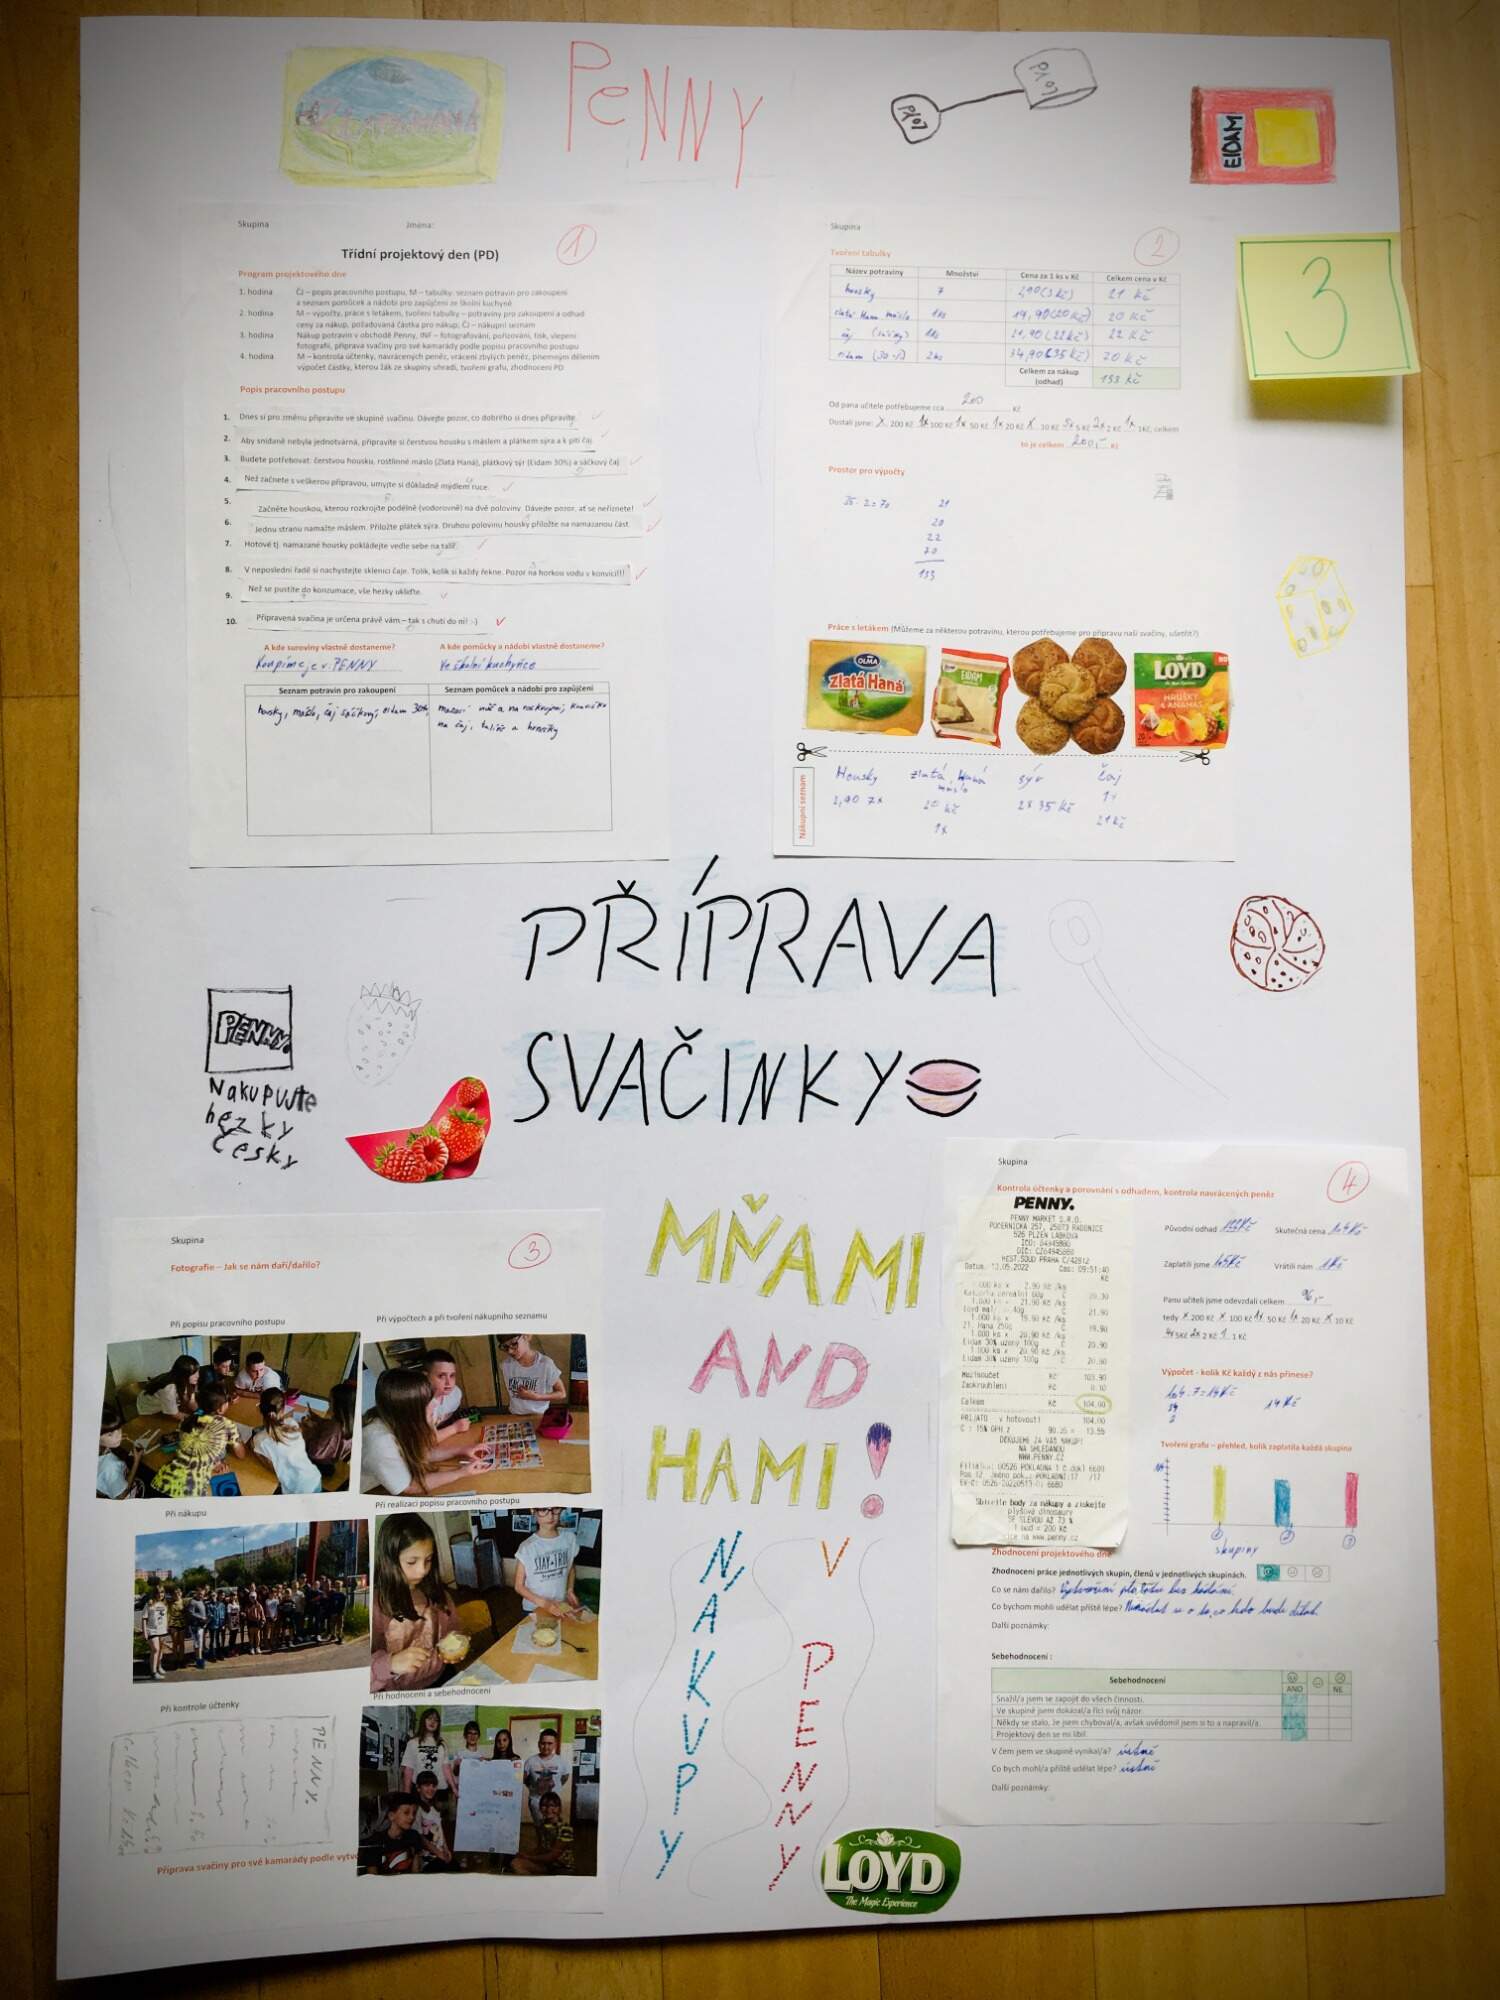 PENNY
EIDAM
3
Skupina
Jména:
1
Třídní projektový den (PD)
Program projektového dne
1. hodina ČJ – popis pracovního postupu, M – tabulky: seznam potravin pro zakoupení
a seznam pomůcek a nádobí pro zapůjčení ze školní kuchyně
2. hodina M – výpočty, práce s letákem, tvoření tabulky – potraviny pro zakoupení a odhad
ceny za nákup, požadovaná částka pro nákup; ČJ – nákupní seznam
3. hodina Nákup potravin v obchodě Penny, INF – fotografování, pořizování, tisk, vlepení
fotografií, příprava svačiny pro své kamarády podle popisu pracovního postupu
4. hodina M – kontrola účtenky, navrácených peněz, vrácení zbylých peněz, písemným dělením
výpočet částky, kterou žák ze skupiny uhradí, tvoření grafu, zhodnocení PD
Popis pracovního postupu
1. Dnes si pro změnu připravíte ve skupině svačinu. Dávejte pozor, co dobrého si dnes připravíte.
2. Aby snídaně nebyla jednotvárná, připravíte si čerstvou housku s máslem a plátkem sýra a k pití čaj.
3. Budete potřebovat: čerstvou housku, rostlinné máslo (Zlatá Haná), plátkový sýr (Eidam 30%) a sáčkový čaj.
4. Než začnete s veškerou přípravou, umyjte si důkladně mýdlem ruce.
5. Začněte houskou, kterou rozkrojte podélně (vodorovně) na dvě poloviny. Dávejte pozor, ať se neříznete!
6. Jednu stranu namažte máslem. Přiložte plátek sýra. Druhou polovinu housky přiložte na namazanou část.
7. Hotové tj. namazané housky pokládejte vedle sebe na talíř.
8. V neposlední řadě si nachystejte sklenici čaje. Tolik, kolik si každý řekne. Pozor na horkou vodu v konvici!!!
9. Než se pustíte do konzumace, vše hezky ukliďte.
10. Připravená svačina je určena právě vám – tak s chutí do ní! :-)
A kde suroviny vlastně dostaneme?
A kde pomůcky a nádobí vlastně dostaneme?
Koupíme je v PENNY
Ve školní kuchyňce
Seznam potravin pro zakoupení
Seznam pomůcek a nádobí pro zapůjčení
housky, máslo, čaj sáčkový, eidam 30%
Skupina
2
Tvoření tabulky
Název potraviny Množství Cena za 1 ks v Kč Celkem cena v Kč
housky 7 2,90 (3 Kč) 21 Kč
zlatá Haná máslo 1ks 19,90 (20 Kč) 20 Kč
čaj (sáčky) 1ks 21,90 (22 Kč) 22 Kč
eidam (30%) 2ks 34,90 (35 Kč) 20 Kč
Celkem za nákup (odhad) 133 Kč
Od pana učitele potřebujeme cca 200 Kč
Dostali jsme: x 200 Kč 1x 100 Kč 1x 50 Kč 1x 20 Kč x 10 Kč 5x 5 Kč 2x 2 Kč 1x 1Kč, celkem
to je celkem 200,- Kč
Prostor pro výpočty
35 · 2 = 70
21
20
22
70
133
Práce s letákem (Můžeme za některou potravinu, kterou potřebujeme pro přípravu naší svačiny, ušetřit?)
OLMA
Zlatá Haná
EIDAM
LOYD
HRUŠKY & ANANAS
Nákupní seznam
Housky zlatá Haná máslo sýr čaj
2,90 7x 20 Kč 2x 35 Kč 1x
1x 21 Kč
PŘÍPRAVA
SVAČINKY
PENNY.
Nakupujte
hezky
česky
MŇAMI
AND
HAMI!
NAKUPY
V PENNY
LOYD
The Magic Experience
Skupina
3
Fotografie – Jak se nám daří/dařilo?
Při popisu pracovního postupu
Při výpočtech a při tvoření nákupního seznamu
Při nákupu
Při realizaci popisu pracovního postupu
STAY TRUE
Při kontrole účtenky
Při hodnocení a sebehodnocení
PENNY.
Příprava svačiny pro své kamarády podle vytvo
Skupina
4
Kontrola účtenky a porovnání s odhadem, kontrola navrácených peněz
PENNY.
PENNY MARKET S.R.O.
POČERNICKÁ 257, 25073 RADONICE
526 PLZEŇ LÁBKOVA
IČO: 64945880
DIČ: CZ64945880
MĚST.SOUD PRAHA C/42812
Datum: 13.05.2022 Čas: 09:51:40
Kč
7.000 ks x 2.90 Kč /ks
Kaiserka cereální 60g C 20.30
1.000 ks x 21.90 Kč /ks
C 21.90
1.000 ks x 19.90 Kč /ks
Zl. Haná 250g C 19.90
1.000 ks x 20.90 Kč /ks
Eidam 30% uzený 100g C 20.90
1.000 ks x 20.90 Kč /ks
Eidam 30% uzený 100g C 20.90
Mezisoučet Kč 103.90
Zaokrouhlení Kč 0.10
Celkem Kč 104.00
PŘIJATO v hotovosti 104.00
C : 15% DPH z 90.35 = 13.55
DĚKUJEME ZA VÁŠ NÁKUP!
NA SHLEDANOU
WWW.PENNY.CZ
Sbírejte body za nákupy a získejte
plyšové dinosaury
SE SLEVOU AŽ 73 %
1 bod = 200 Kč
více na www.penny.cz
Původní odhad 133 Kč Skutečná cena 104 Kč
Zaplatili jsme 105 Kč Vrátili nám 1 Kč
Panu učiteli jsme odevzdali celkem 96,-
tedy x 200 Kč x 100 Kč 1x 50 Kč 1x 20 Kč x 10 Kč
4x 5Kč 2x 2 Kč 1 1 Kč
Výpočet - kolik Kč každý z nás přinese?
104 : 7 = 14 Kč
34
14 Kč
Tvoření grafu – přehled, kolik zaplatila každá skupina
skupiny
1 2 3
Zhodnocení projektového dne
Zhodnocení práce jednotlivých skupin, členů v jednotlivých skupinách.
Co se nám dařilo? Vytvoření plakátu bez hádání
Co bychom mohli udělat příště lépe? Nehádat se o to, co kdo bude dělat
Další poznámky:
Sebehodnocení :
Sebehodnocení
ANO
NE
Snažil/a jsem se zapojit do všech činností.
Ve skupině jsem dokázal/a říci svůj názor.
Někdy se stalo, že jsem chyboval/a, avšak uvědomil jsem si to a napravil/a.
Projektový den se mi líbil.
V čem jsem ve skupině vynikal/a? ústně
Co bych mohl/a příště udělat lépe? ústně
Další poznámky: